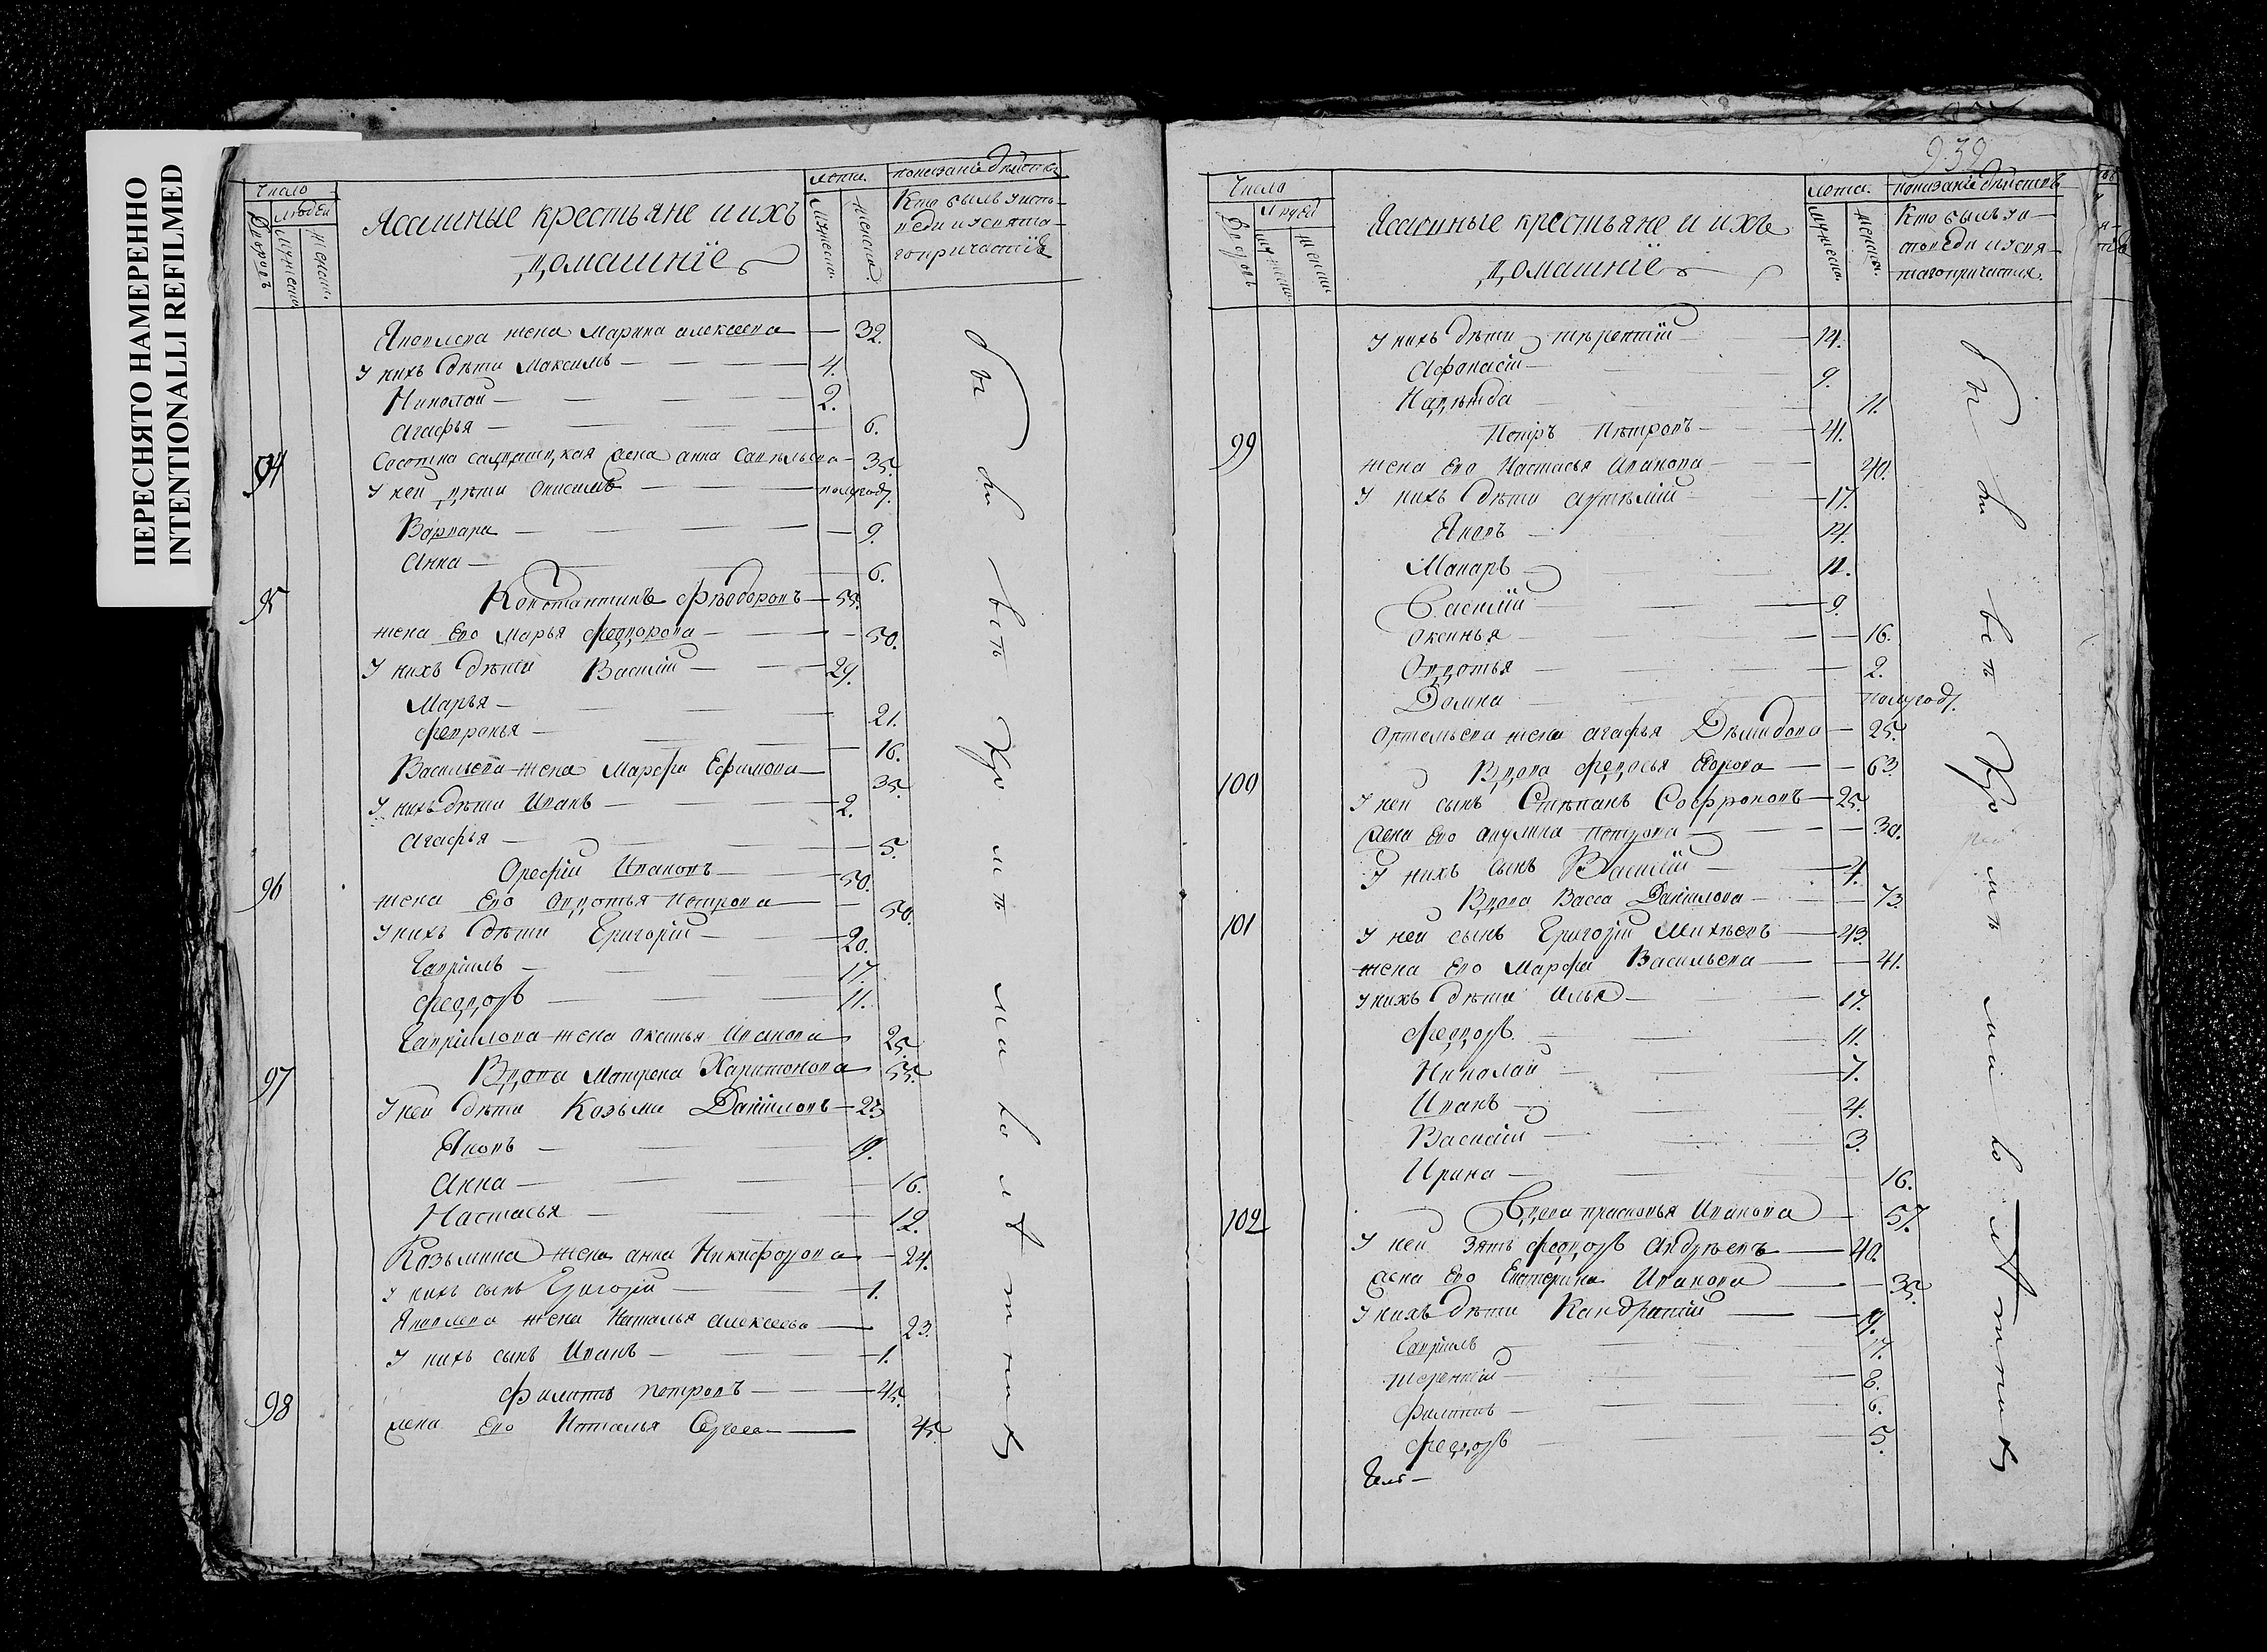 ПЕРЕСНЯТО НАМЕРЕННО
INTENTIONALLI REFILMED
Число
людей
Дворовъ
мужеска
женска
Ясашные крестьяне и ихъ
домашнїе
лета.
мужеска.
женска.
показанїе действъ
Кто былъ у испо-
веди и у свята-
го причастїя
Яковлева жена Марина алексеева 32.
У нихъ дѣти Максимъ 4.
Николай 2.
Агафья 6.
94
жена анна Савельева 35.
У ней дѣти Анисимъ полугоду.
Варвара 9.
Анна 6.
95
Константинъ Фѣодоровъ 55.
жена Ево Марья Федорова 50.
У нихъ дѣти Василїй 29.
Марья 21.
Февронья 16.
Васильева жена Марфа Ефимова 35.
У нихъ дѣти Иванъ 2.
Агафья 5.
96
Орефїй Ивановъ 50.
жена Ево Авдотья Петрова 50.
У нихъ дѣти Григорїй 20.
Гаврїилъ 17.
Федоръ 11.
Гаврїилова жена Оксинья Иванова 25.
97
Вдова Матрена Харитонова 55.
У ней дѣти Козьма Данїиловъ 23
Яковъ 19.
Анна 16.
Настасья 12.
Козьмина жена анна Никифорова 24.
У нихъ сынъ Григорїй 1.
Яковлева жена Наталья алексеева 23.
У нихъ сынъ Иванъ 1.
98
Филиппъ Петровъ 45.
жена Ево Наталья Сергеева 45.
932
Число
людей
Дворовъ
мужеска
женска
Ясашные крестьяне и ихъ
домашнїе
лета.
мужеска.
женска.
показанїе действъ
Кто былъ у и-
споведи и у свя-
таго причастия.
У нихъ дѣти терентїй 14.
Афонасїй 9.
Надѣжда 11.
99
Петръ Пѣтровъ 41.
жена Ево Настасья Иванова 40.
У нихъ дѣти артѣмїй 17.
Яковъ 14.
Макаръ 11.
Василїй 9.
Оксинья 16.
Овдотья 2.
Домна полугоду.
Ортемьева жена агафья Дѣмидова 25.
100
Вдова Федосья Егорова 63.
У ней сынъ Стѣпанъ Софроновъ 25.
жена Ево акулина петрова 30.
У нихъ сынъ Василїй 4.
101
Вдова Васса Данїилова 73.
У ней сынъ Григорїй Михѣевъ 43.
жена Ево Марфа Васильева 41.
У нихъ дѣти Илья 17.
Федоръ 11.
Николай 7.
Иванъ 4.
Василїй 3.
Ирина 16.
102
Вдова прасковья Иванова 57.
У ней зять Федоръ Андрѣевъ 40.
жена Ево Екатерина Иванова 35.
У нихъ дѣти Кандратїй 19.
Гаврїилъ 17.
терентїй 8.
Филиппъ 6.
Федоръ 5.